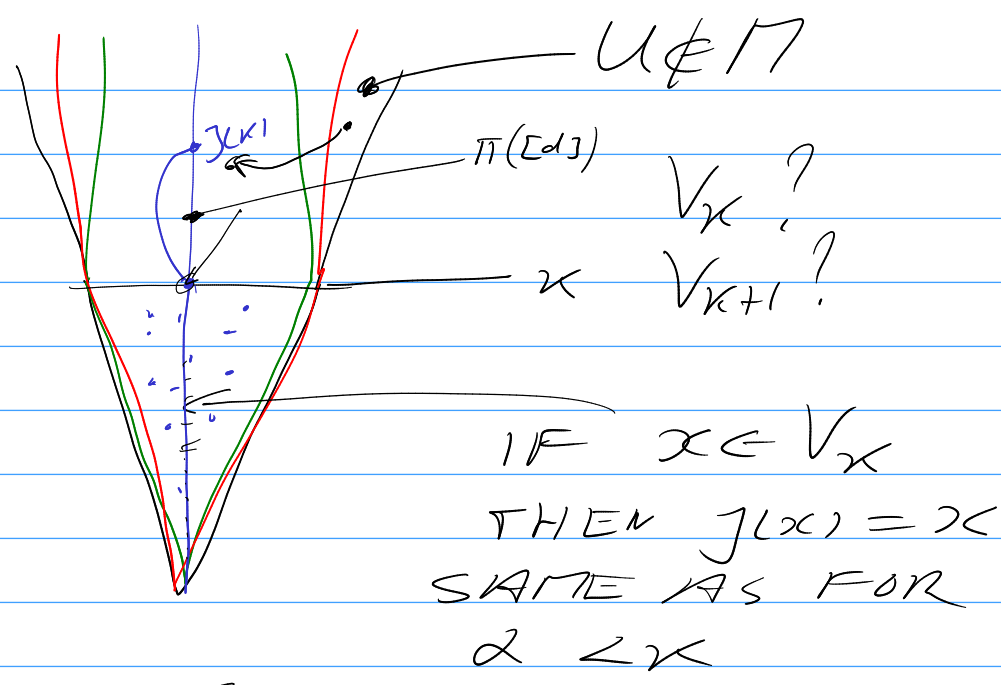 U ∉ M
j(κ)
π([d])
V_κ ?
κ
V_κ+1 ?
IF x ∈ V_κ
THEN j(x) = x
SAME AS FOR
α < κ